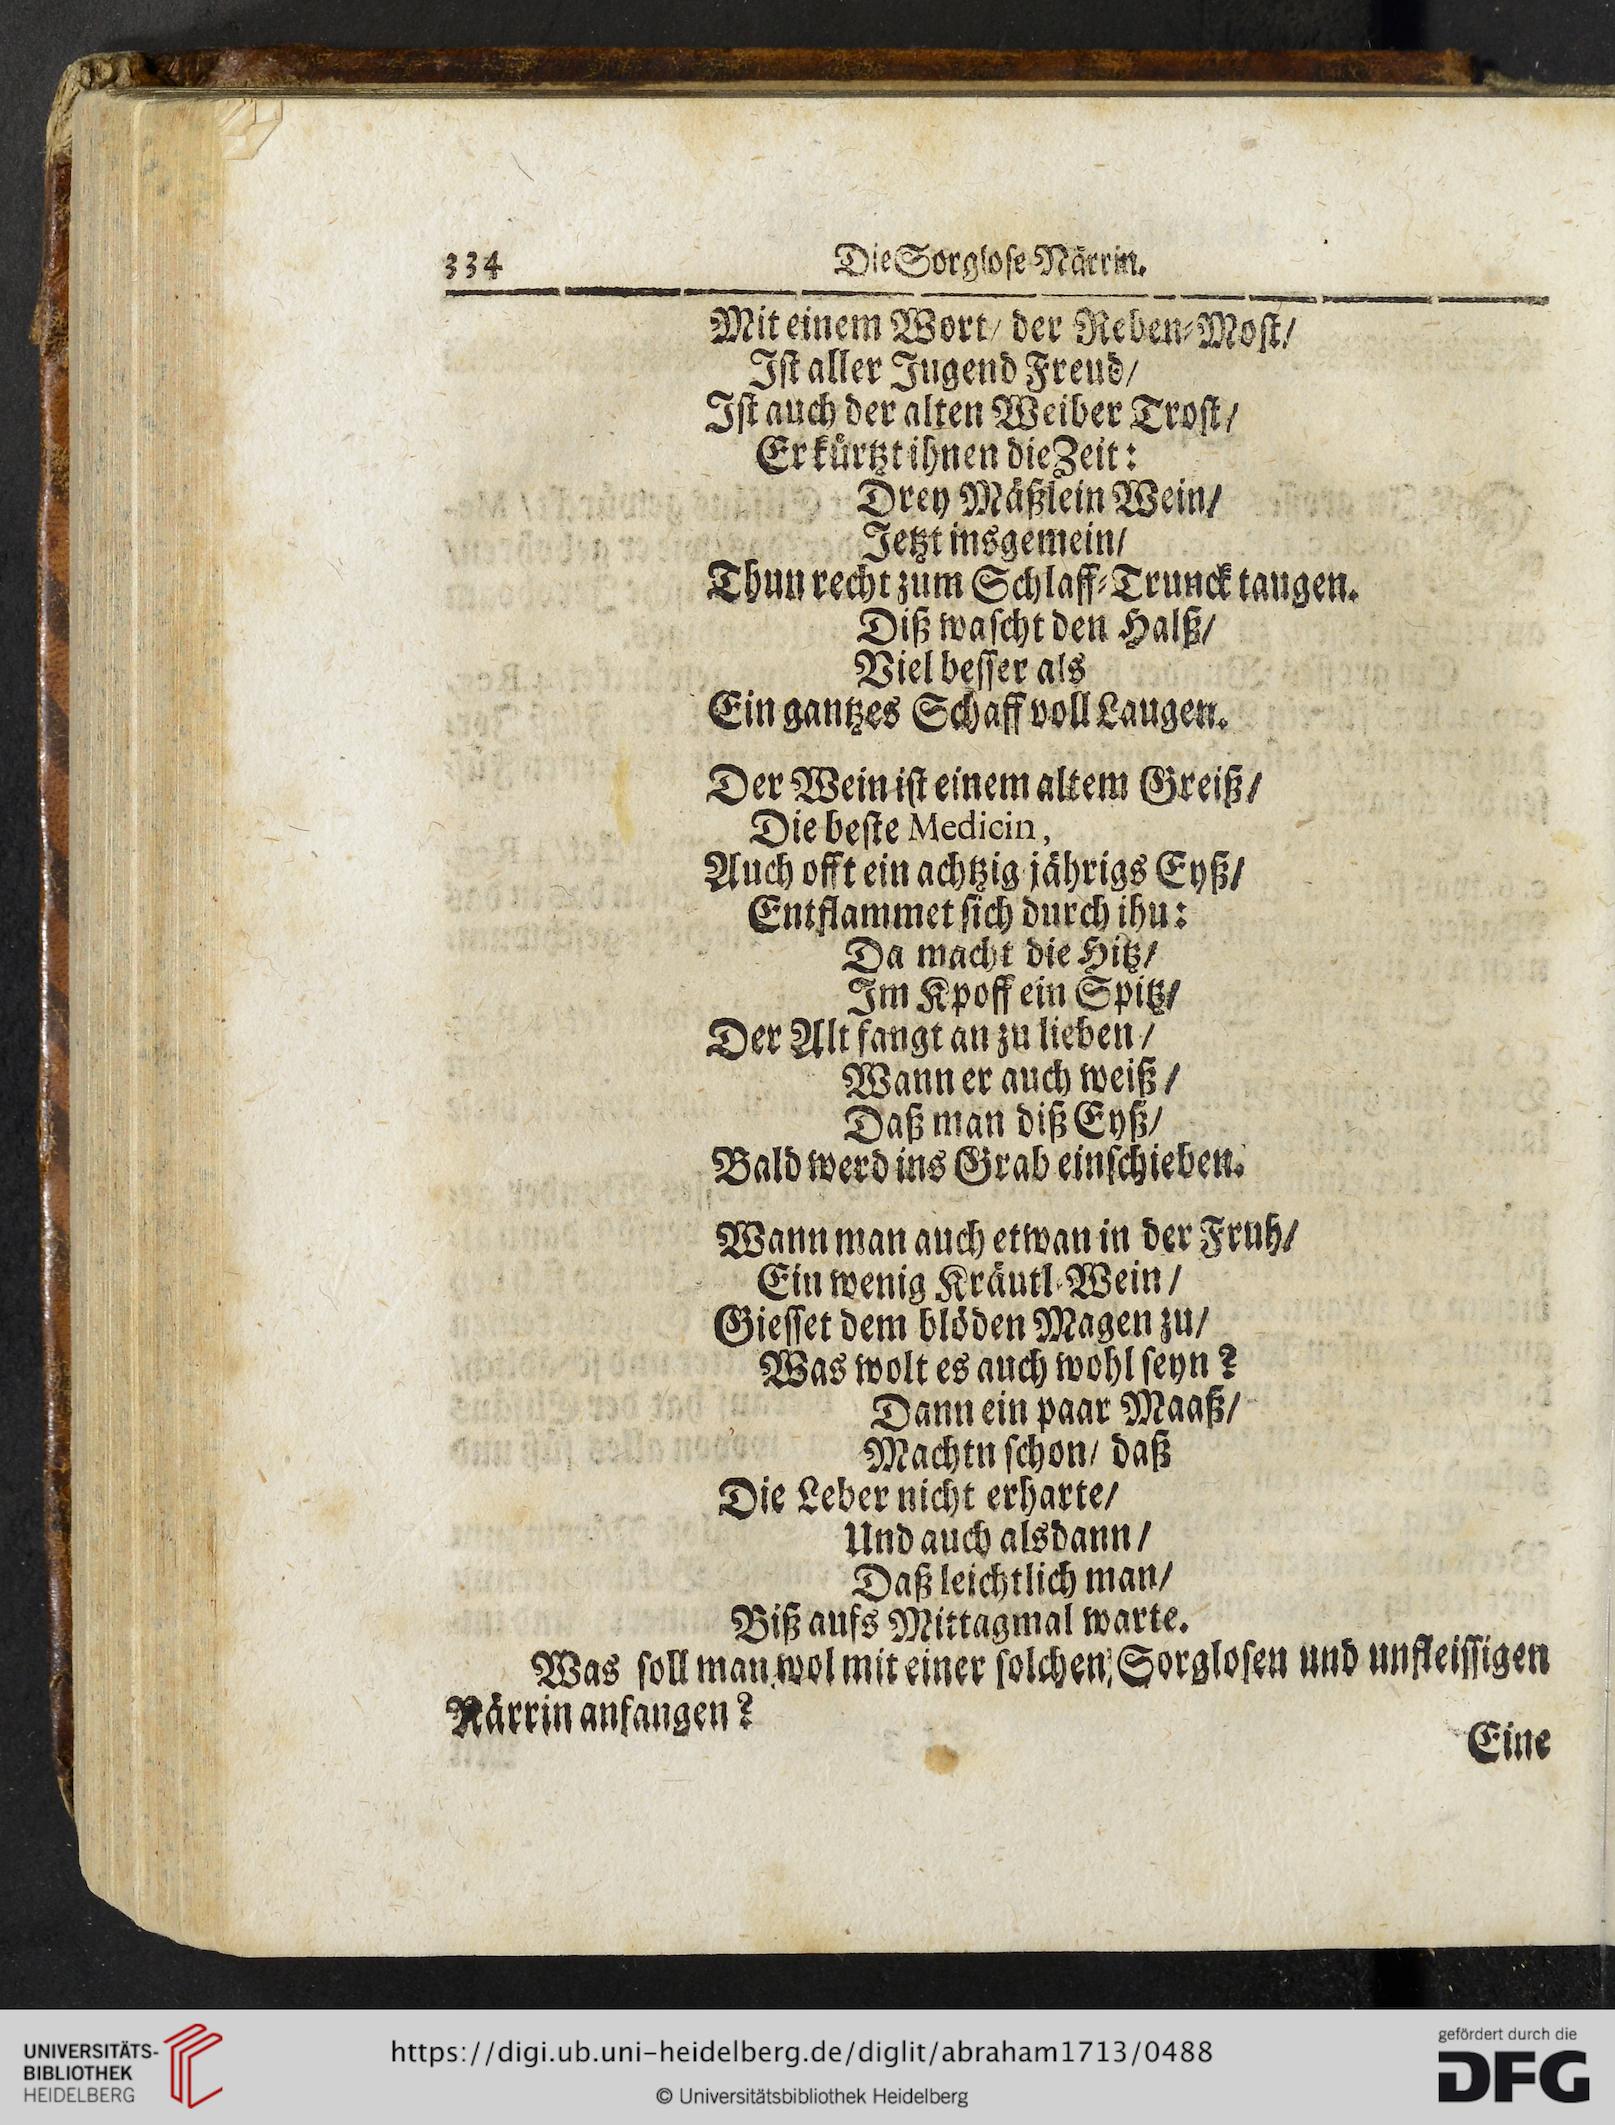 334 Die Sorglose Närrin.
Mit einem Wort/ der Reben-Most/
Ist aller Jugend Freud/
Ist auch der alten Weiber Trost/
Er kürtzt ihnen die Zeit:
Drey Mäßlein Wein/
Jetzt insgemein/
Thun recht zum Schlaff-Trunck taugen.
Diß wascht den Halß/
Viel besser als
Ein gantzes Schaff voll Laugen.
Der Wein ist einem altem Greiß/
Die beste Medicin,
Auch offt ein achtzig jährigs Eyß/
Entflammet sich durch ihu:
Da macht die Hitz/
Im Kpoff ein Spitz/
Der Alt fangt an zu lieben/
Wann er auch weiß/
Daß man diß Eyß/
Bald werd ins Grab einschieben.
Wann man auch etwan in der Fruh/
Ein wenig Kräutl-Wein/
Giesset dem blöden Magen zu/
Was wolt es auch wohl seyn?
Dann ein paar Maaß/
Machtn schon/ daß
Die Leber nicht erharte/
Und auch alsdann/
Daß leichtlich man/
Biß aufs Mittagmal warte.
Was soll man wol mit einer solchen Sorglosen und unfleissigen
Närrin anfangen?
Eine
UNIVERSITÄTS-
BIBLIOTHEK
HEIDELBERG
https://digi.ub.uni-heidelberg.de/diglit/abraham1713/0488
© Universitätsbibliothek Heidelberg
gefördert durch die
DFG